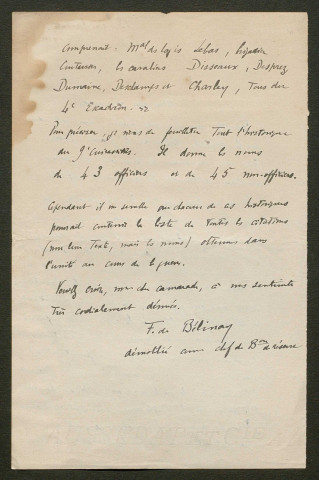 comprenant : Mal des logis Lebas, brigadier
Couturon, les cavaliers Disseaux, Desprez
Dumaine, Deschamps et Charley, tous du
4e Escadron. »
je viens de feuilleter tout l'historique
du 9e Cuirassiers. Il donne les noms
de 43 officiers et de 45 sous-officiers.
Cependant il me semble que chacun de ces historiques
pourrait contenir la liste de toutes les citations
(non leur texte, mais les noms) obtenues dans
l'unité au cours de la guerre.
Veuillez croire, mon cher camarade, à mes sentiments
très cordialement dévoués.
F. de Bélinay
démobilisé comme chef de Bon de réserve